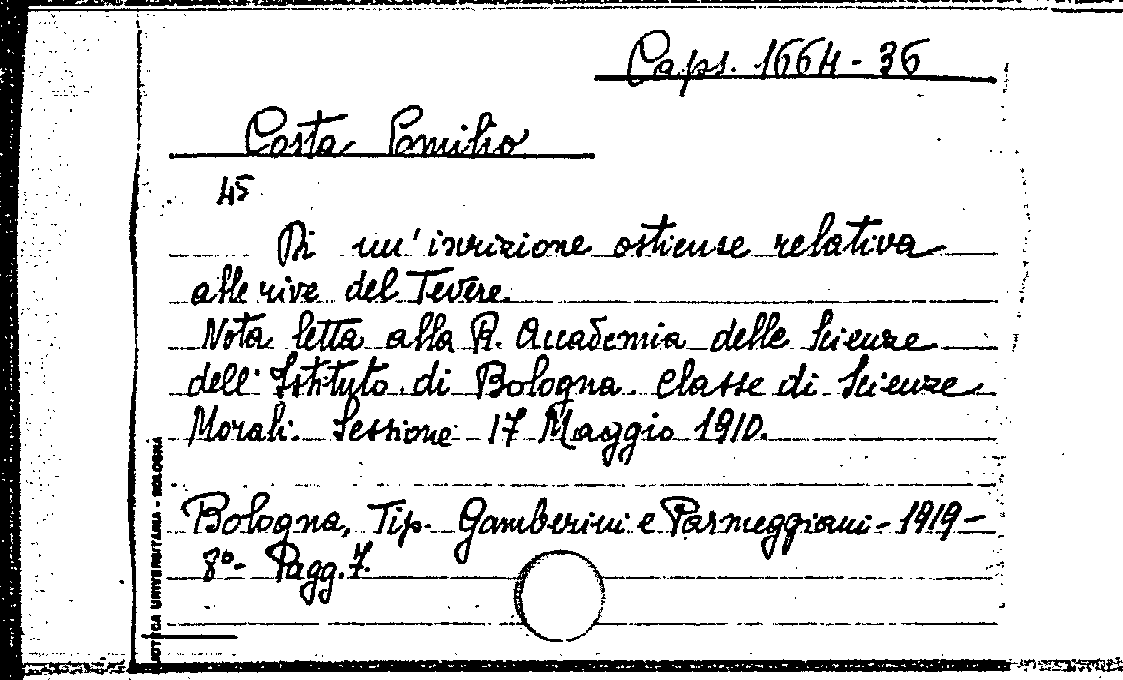 Caps. 1664-36
Costa Emilio
45
Di un'iscrizione ostiense relativa
alle rive del Tevere.
Nota letta alla R. Accademia delle Scienze
dell'Istituto di Bologna. Classe di Scienze
Morali. Sessione 17 Maggio 1910.
Bologna, Tip. Gamberini e Parmeggiani-1919-
8º- Pagg. 7.
UNIVERSITARIA - BOLOGNA